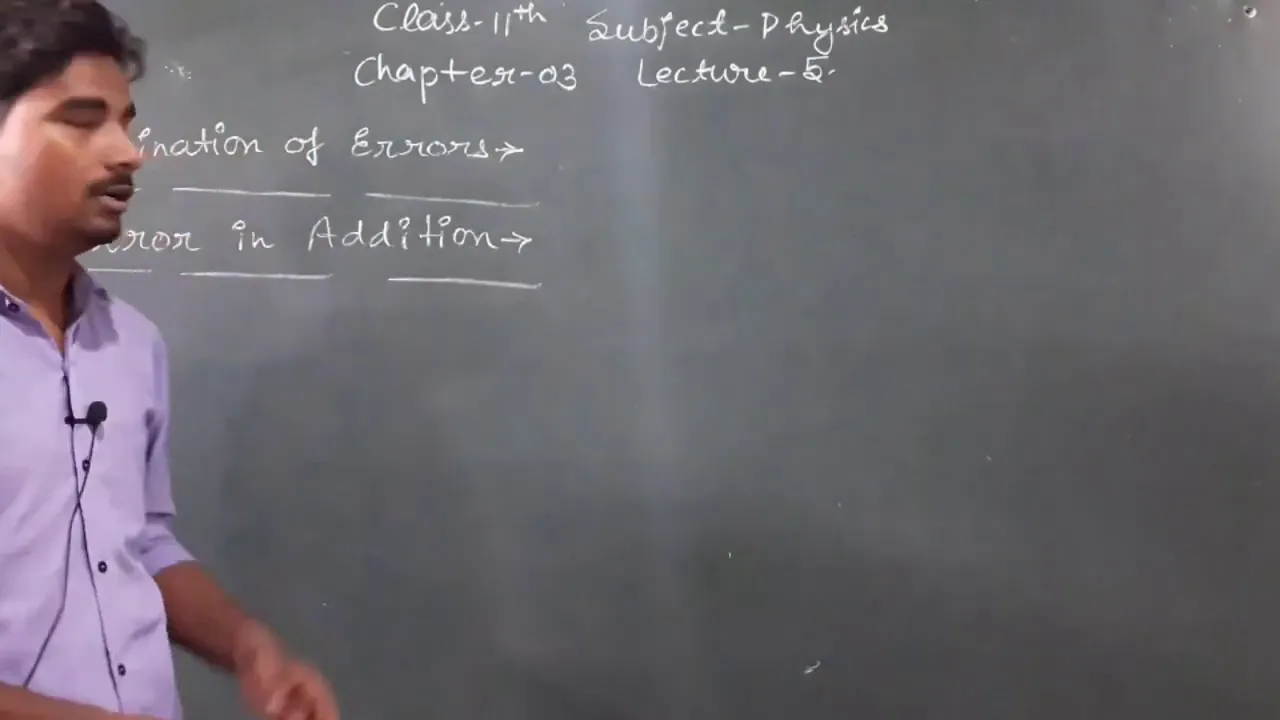 Class-11th Subject-Physics
Chapter-03 Lecture-5.
ination of Errors→
rror in Addition→